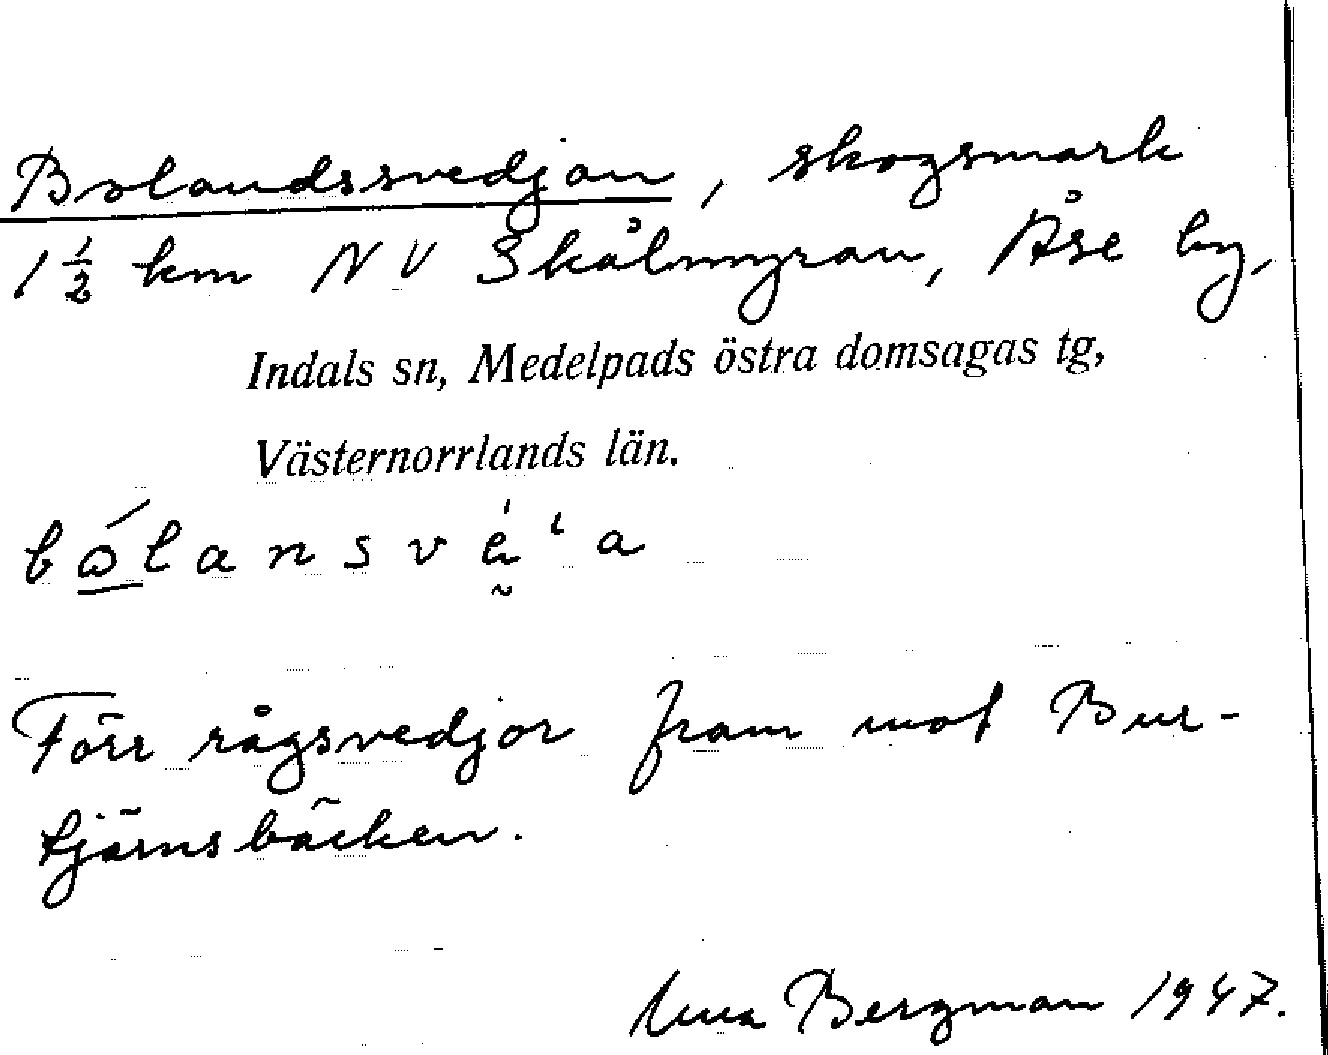 Bolandssvedjan, skogsmark
1 ½ km NV Skålmyran, Åse by,
Indals sn, Medelpads östra domsagas tg,
Västernorrlands län.
Förr rågsvedjor fram mot Bur-
tjärnsbäcken.
Bergman 1947.